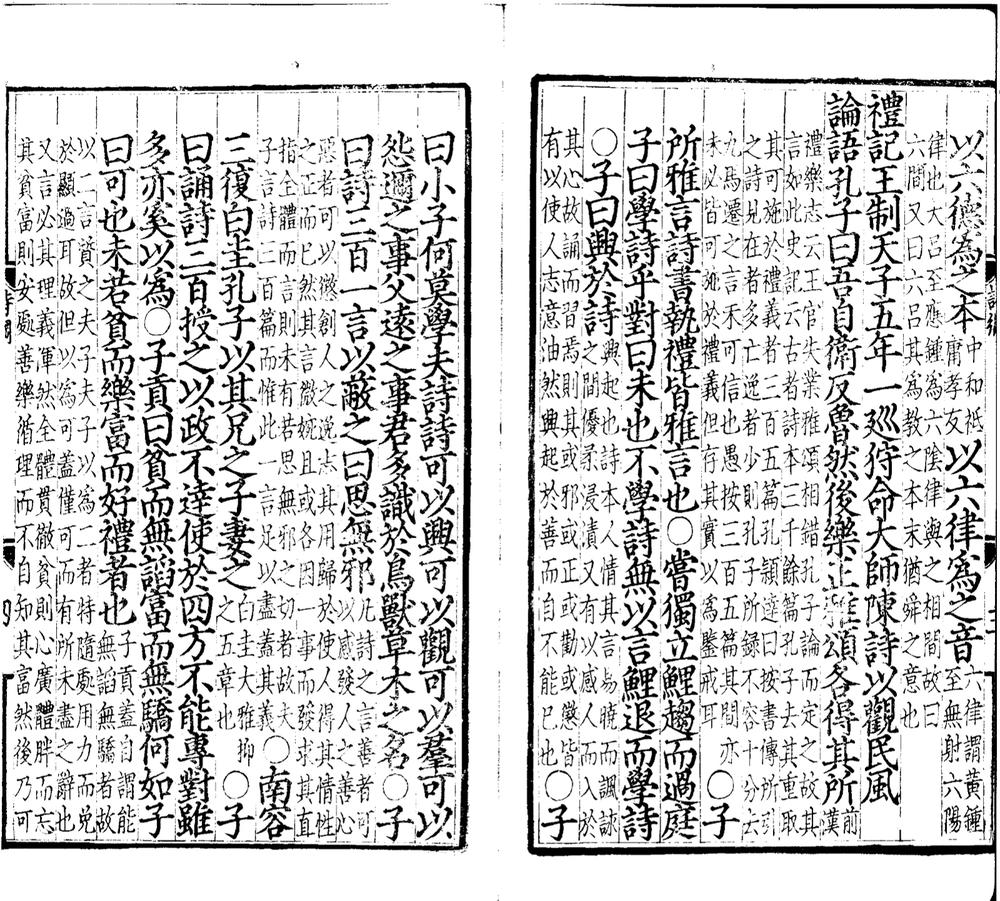 以六德為之本中和祗庸孝友以六律為之音六律謂黃鍾至無射六陽
律也大呂至應鍾為六陰律與之相間故曰
六間又曰六呂其為教之本末猶舜之意也
禮記王制天子五年一廵狩命大師陳詩以觀民風
論語孔子曰吾自衛反魯然後樂正雅頌各得其所前漢
禮樂志云王官失業雅頌相錯孔子論而定之故其
言如此史記云古者詩本三千餘篇孔子去其重取
其可施於禮義者三百五篇孔穎達曰按書傳所引
之詩見在者多亡逸者少則孔子所錄不容十分去
九馬遷之言未可信也愚按三百五篇其間亦
未必皆可施於禮義但存其實以為鑒戒耳〇子
所雅言詩書執禮皆雅言也〇嘗獨立鯉趨而過庭
子曰學詩乎對曰未也不學詩無以言鯉退而學詩
〇子曰興於詩興起也詩本人情其言易曉而諷詠之間優柔浸漬又有以感人而入於
其心故誦而習焉則其或邪或正或勸或懲皆
有以使人志意油然興起於善而自不能已也〇子
曰小子何莫學夫詩詩可以興可以觀可以羣可以
怨邇之事父遠之事君多識於鳥獸草木之名〇子
曰詩三百一言以蔽之曰思無邪凡詩之言善者可以感發人之善心
惡者可以懲創人之逸志其用歸於使人得其情性
之正而已然其言微婉且或各因一事而發求其直
指全體而言則未有若思無邪之切者故夫
子言詩三百篇而惟此一言足以盡蓋其義〇南容
三復白圭孔子以其兄之子妻之白圭大雅抑之五章也〇子
曰誦詩三百授之以政不達使於四方不能專對雖
多亦奚以為〇子貢曰貧而無諂富而無驕何如子
曰可也未若貧而樂富而好禮者也子貢蓋自謂能無諂無驕者故
以二言質之夫子夫子以為二者特隨處用力而免
於顯過耳故但以為可蓋僅可而有所未盡之辭也
又言必其理義渾然全體貫徹貧則心廣體胖而忘
其貧富則安處善樂循理而不自知其富然後乃可